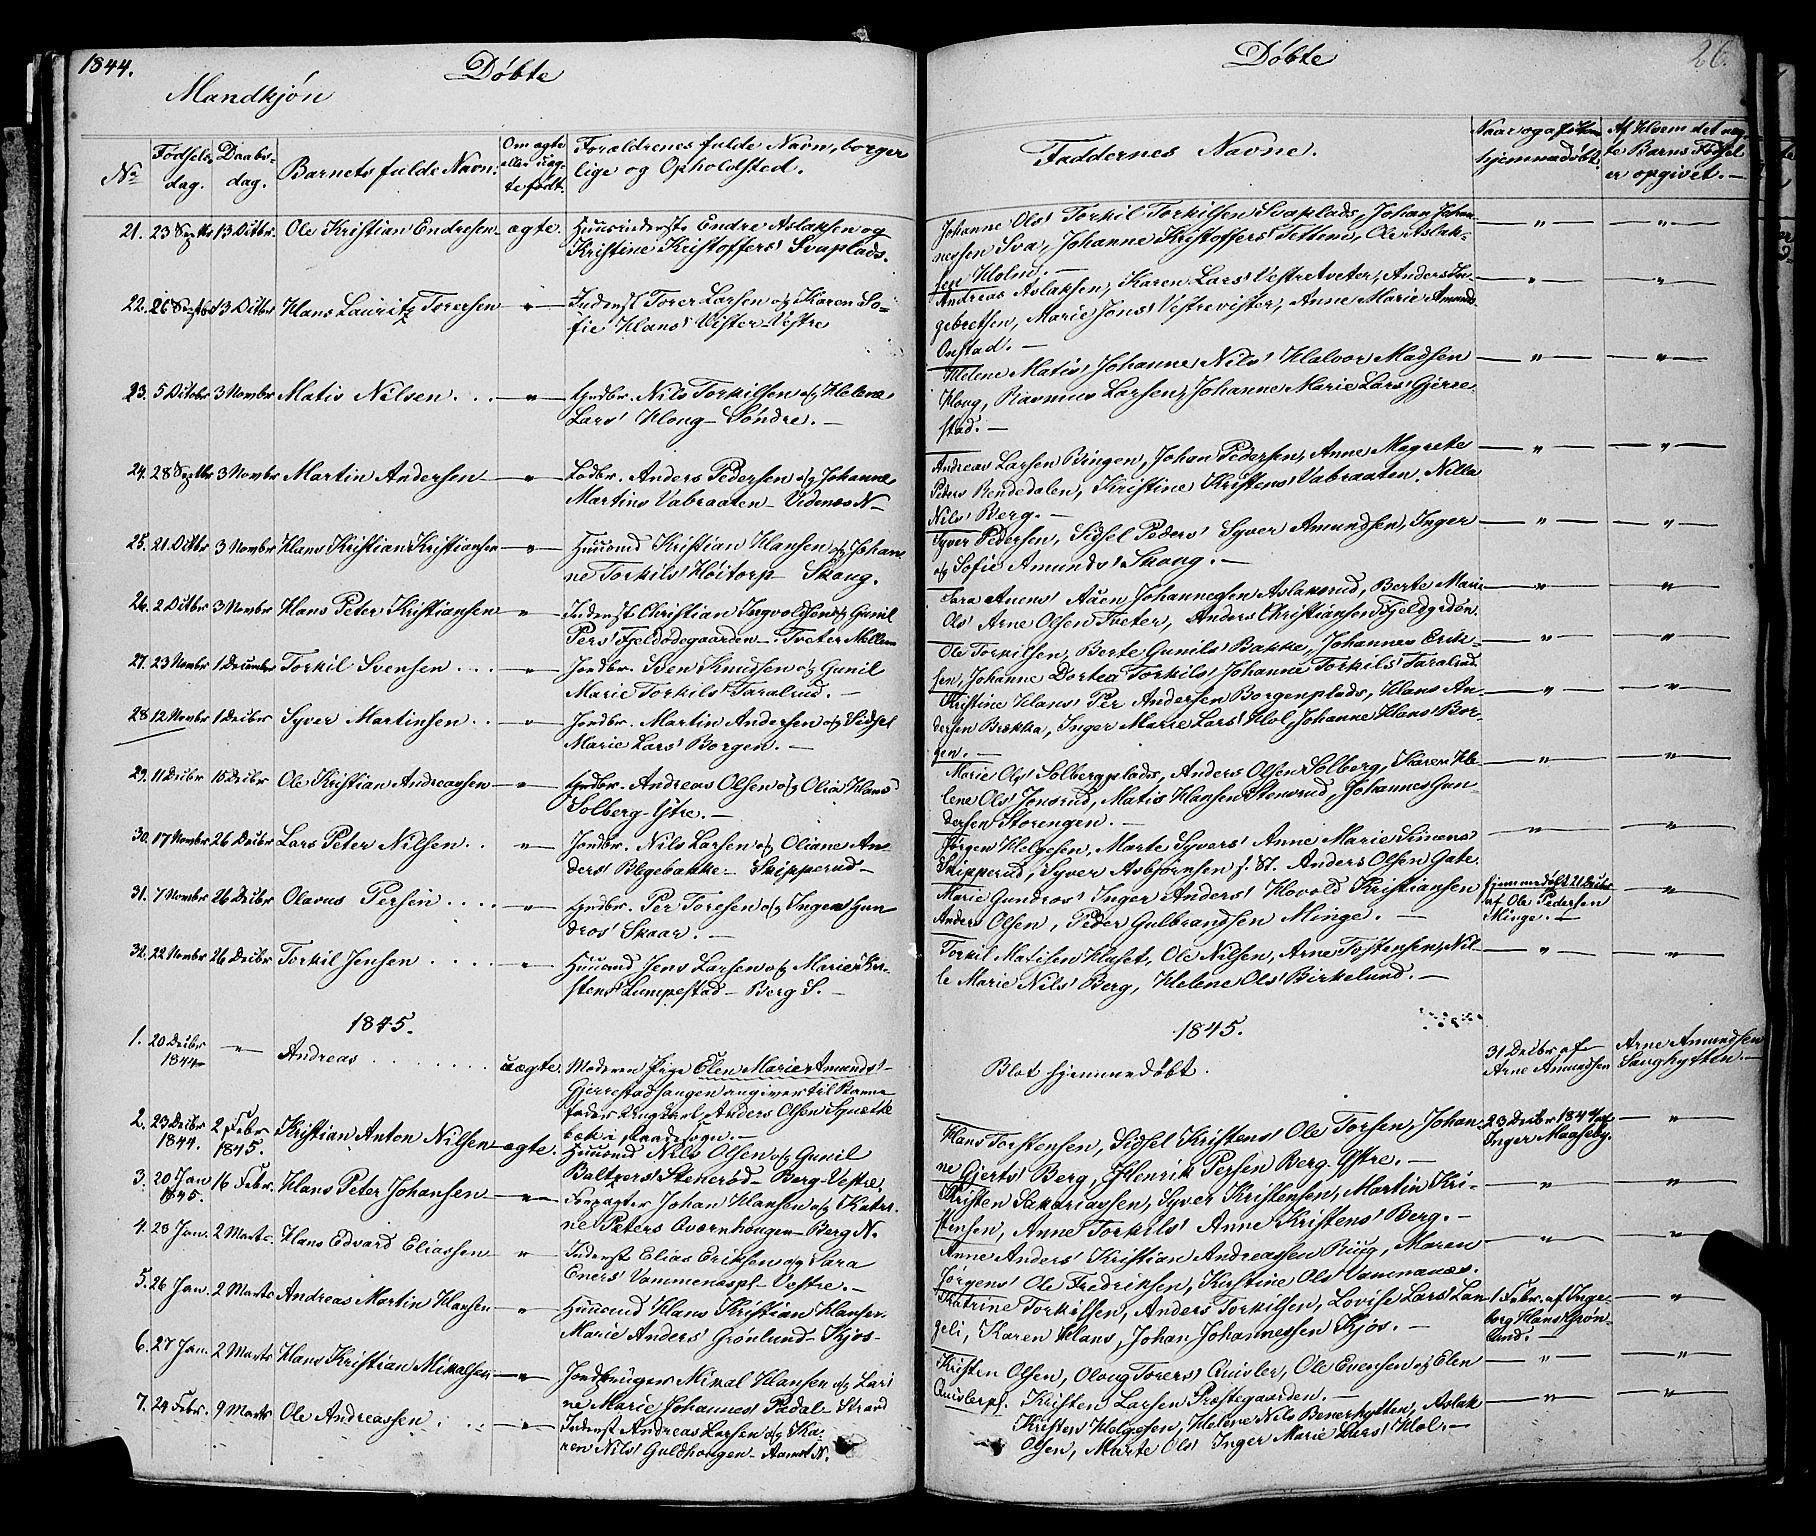 1844.
Døbte
Mandkjøn
No
Fødsels
dag.
Daabs-
dag.
Barnets fulde Navn.
Om ægte
eller uæg-
te født.
Forældrenes fulde Navn, borger
lige og Opholdsted.
21. 23 Septbr 13 Octbr. Ole Kristian Endresen ægte. Huusinderste Endre Aslaksen og
Kristine Kristoffers' Svaplads.
22. 26 Septbr 13 Octbr Hans Lauritz Toresen — " — Inderst Torer Larsen og Karen So-
fie Hans' Vister-Vestre
23. 5 Octbr 3 Novbr Matis Nilsen. — " — Gndbr. Nils Torkilsen og Helene
Lars' Haug - Søndre. —
24. 28 Septbr 3 Novbr Martin Andersen — " — Lodbr. Anders Pedersen og Johanne
Martins Vabraaten - Videnes N —
25. 21 Octbr 3 Novbr Hans Kristian Kristiansen — " — Huusmd Kristian Hansen og Johan-
ne Torkils' Høitorp - Skaug.
26. 2 Octbr 3 Novbr Hans Peter Kristiansen — " — Inderst Christian Ingvoldsen og Gunil
Pers' Fjeldødegaarden - Tveter Mellem
27. 23 Novbr 1 Decembr Torkil Svensen . . . — " — Jordbr. Sven Knudsen og Gunil
Marie Torkils' Taralrud. —
28 12 Novbr 1 Decbr Syver Martinsen . . — " — Jordbr. Martin Andersen og Sidsel
Marie Lars' Borgen. —
29. 11 Decbr 15 Decbr Ole Kristian Andreassen — " — Gndbr. Andreas Olsen og Olia Hans'
Solberg-Ystre. —
30. 17 Novbr 26 Decbr Lars Peter Nilsen . . — " — Jordbr. Nils Larsen og Oliane An-
ders' Blegebakke - Skipperud —
31. 7 Novbr 26 Decbr Olavus Persen . . . . — " — Gndbr. Per Toresen og Inger Gun
dros' Skaar. —
32. 22 Novbr 26 Decbr Torkil Jensen . . . . — " — Huusmd Jens Larsen og Marie Kri-
stens' Lumpestad - Berg S. —
1845.
1. 20 Decbr — " — Andreas . . . . . . uægte. Moderen Pige Elen Marie Amunds'
1844
Gjerrestadhaugen angiver til Barne
fader Ungkarl Anders Olsen Spætte
bæk i Raade Sogn. —
2. 23 Decbr 2 Febr Kristian Anton Nilsen ægte. Huusmd Nils Olsen og Gunil
1844. 1845.
Baltzers' Stenerød - Berg-Vestre.
3. 20 Jan 16 Febr. Hans Peter Johansen — " — Forpagter Johan Hansen og Katri-
1845.
ne Peters Overnhougen - Berg N.
4. 28 Jan. 2 Marts. Hans Edvard Eliassen — " — Inderst Elias Eriksen og Sara
Eners' Vammenæspl - Vestre. —
5. 26 Jan. 2 Marts Andreas Martin Hansen — " — Huusmd Hans Kristian Hansen
Marie Anders' Grønlund - Kjos —
6. 27 Jan. 2 Marts Hans Kristian Mikalsen — " — Jordbruger Mikal Hansen og Lari
ne Marie Johannes' Padal - Strand
7. 24 Febr. 9 Marts Ole Andreassen . . . — " — Inderst Andreas Larsen og Ka-
ren Nils' Guldhaugen - Aamot N.
Døbte
26.
Faddernes Navne.
Naar og af Hvem
hjemmedøbt.
Af Hvem det uæg-
te Barns Fødsel
er opgivet. —
Johanne Ols' Torkil Torkilsen Svaplads, Johan Johan-
nessen Sva, Johanne Kristoffers' Tetteni, Ole Aslak-
sen Holm. —
Andreas Aslaksen, Karen Lars' Vestretveter, Anders In-
gebretsen, Marie Jons' Vestrevister, Anne Marie Amunds'
Onstad. —
Helene Matis' Johanne Nils' Halvor Madsen
Haug, Rasmus Larsen, Johanne Marie Lars' Gjerre-
stad. —
Andreas Larsen Bingen, Johan Pedersen, Anne Magrete
Peders Rendedalen, Kristine Kristens' Vabraaten. Nilla
Nils' Berg. —
Syver Pedersen, Sidsel Peders' Syver Amundsen, Inger
og Sofie Amunds' Skaug. —
Sara Anens' Aaen, Johannes Aslaksrud, Berte Marie
Ols' Arne Olsen Tveter, Anders Christiansen Fjeldgrden.
Ole Torkilsen, Berte Gunils' Bakke, Johannes Erik-
sen, Johanne Dortea Torkils' Johanne Torkils' Taralrud.
Kristine Hans' Per Andersen Borgenplads, Hans An-
dersen Brækka, Inger Marie Lars' Hol, Johanne Hans' Bor-
gen. —
Marie Ols' Solbergplads, Anders Olsen Solberg, Karen He-
lene Ols' Jonsrud, Matis Hansen Stensrud, Johannes Gun-
dersen Storengen. —
Jørgen Helgesen, Marte Syvers' Anne Marie Simens'
Skipperud, Syver Asbjørnsen f. St. Anders Olsen Gate.
Marie Gundros' Inger Anders' Hovold Kristiansen
Anders Olsen, Peder Gulbrandsen Minge. —
Hjemmedøbt 21 Decbr
af Ole Pedersen
Minge. —
Torkil Matisen Huset, Ole Nilsen, Arne Tostensen, Nil-
le Marie Nils' Berg, Helene Ols' Birkelund. —
1845.
Blot hjemmedøbt.
31 Decbr af
Arne Amundsen
Arne Amundsen
Saughytten. —
Hans Torstensen, Sidsel Kristens' Ole Torsen, Johan-
ne Gjerts' Berg, Henrik Persen Berg-Ystre. —
23 Decbr 1844 af
Inger Maaseby.
Kristen Sakariassen, Syver Kristensen, Martin Kri-
stensen, Anne Torkils' Anne Kristens' Berg. —
Anne Anders' Kristian Andreassen Rug, Maren
Jørgens' Ole Fredriksen, Kirstine Ols' Vammanæs.
Katrine Torkilsen, Anders Torkilsen, Lovise Lars' Lan-
geli, Karen Hans, Johan Johannessen Kjos. —
1 Febr. af Inge-
borg Hans' Grøn-
lund. —
Kristen Olsen, Olaug Torers' Quisler, Ole Evensen og Elen
Quislerpl. Kristen Larsen Præstegaarden. —
Kristen Helgesen, Helene Nils Benerhytten, Aslak
Olsen, Marte Ols' Inger Marie Lars' Hol. —